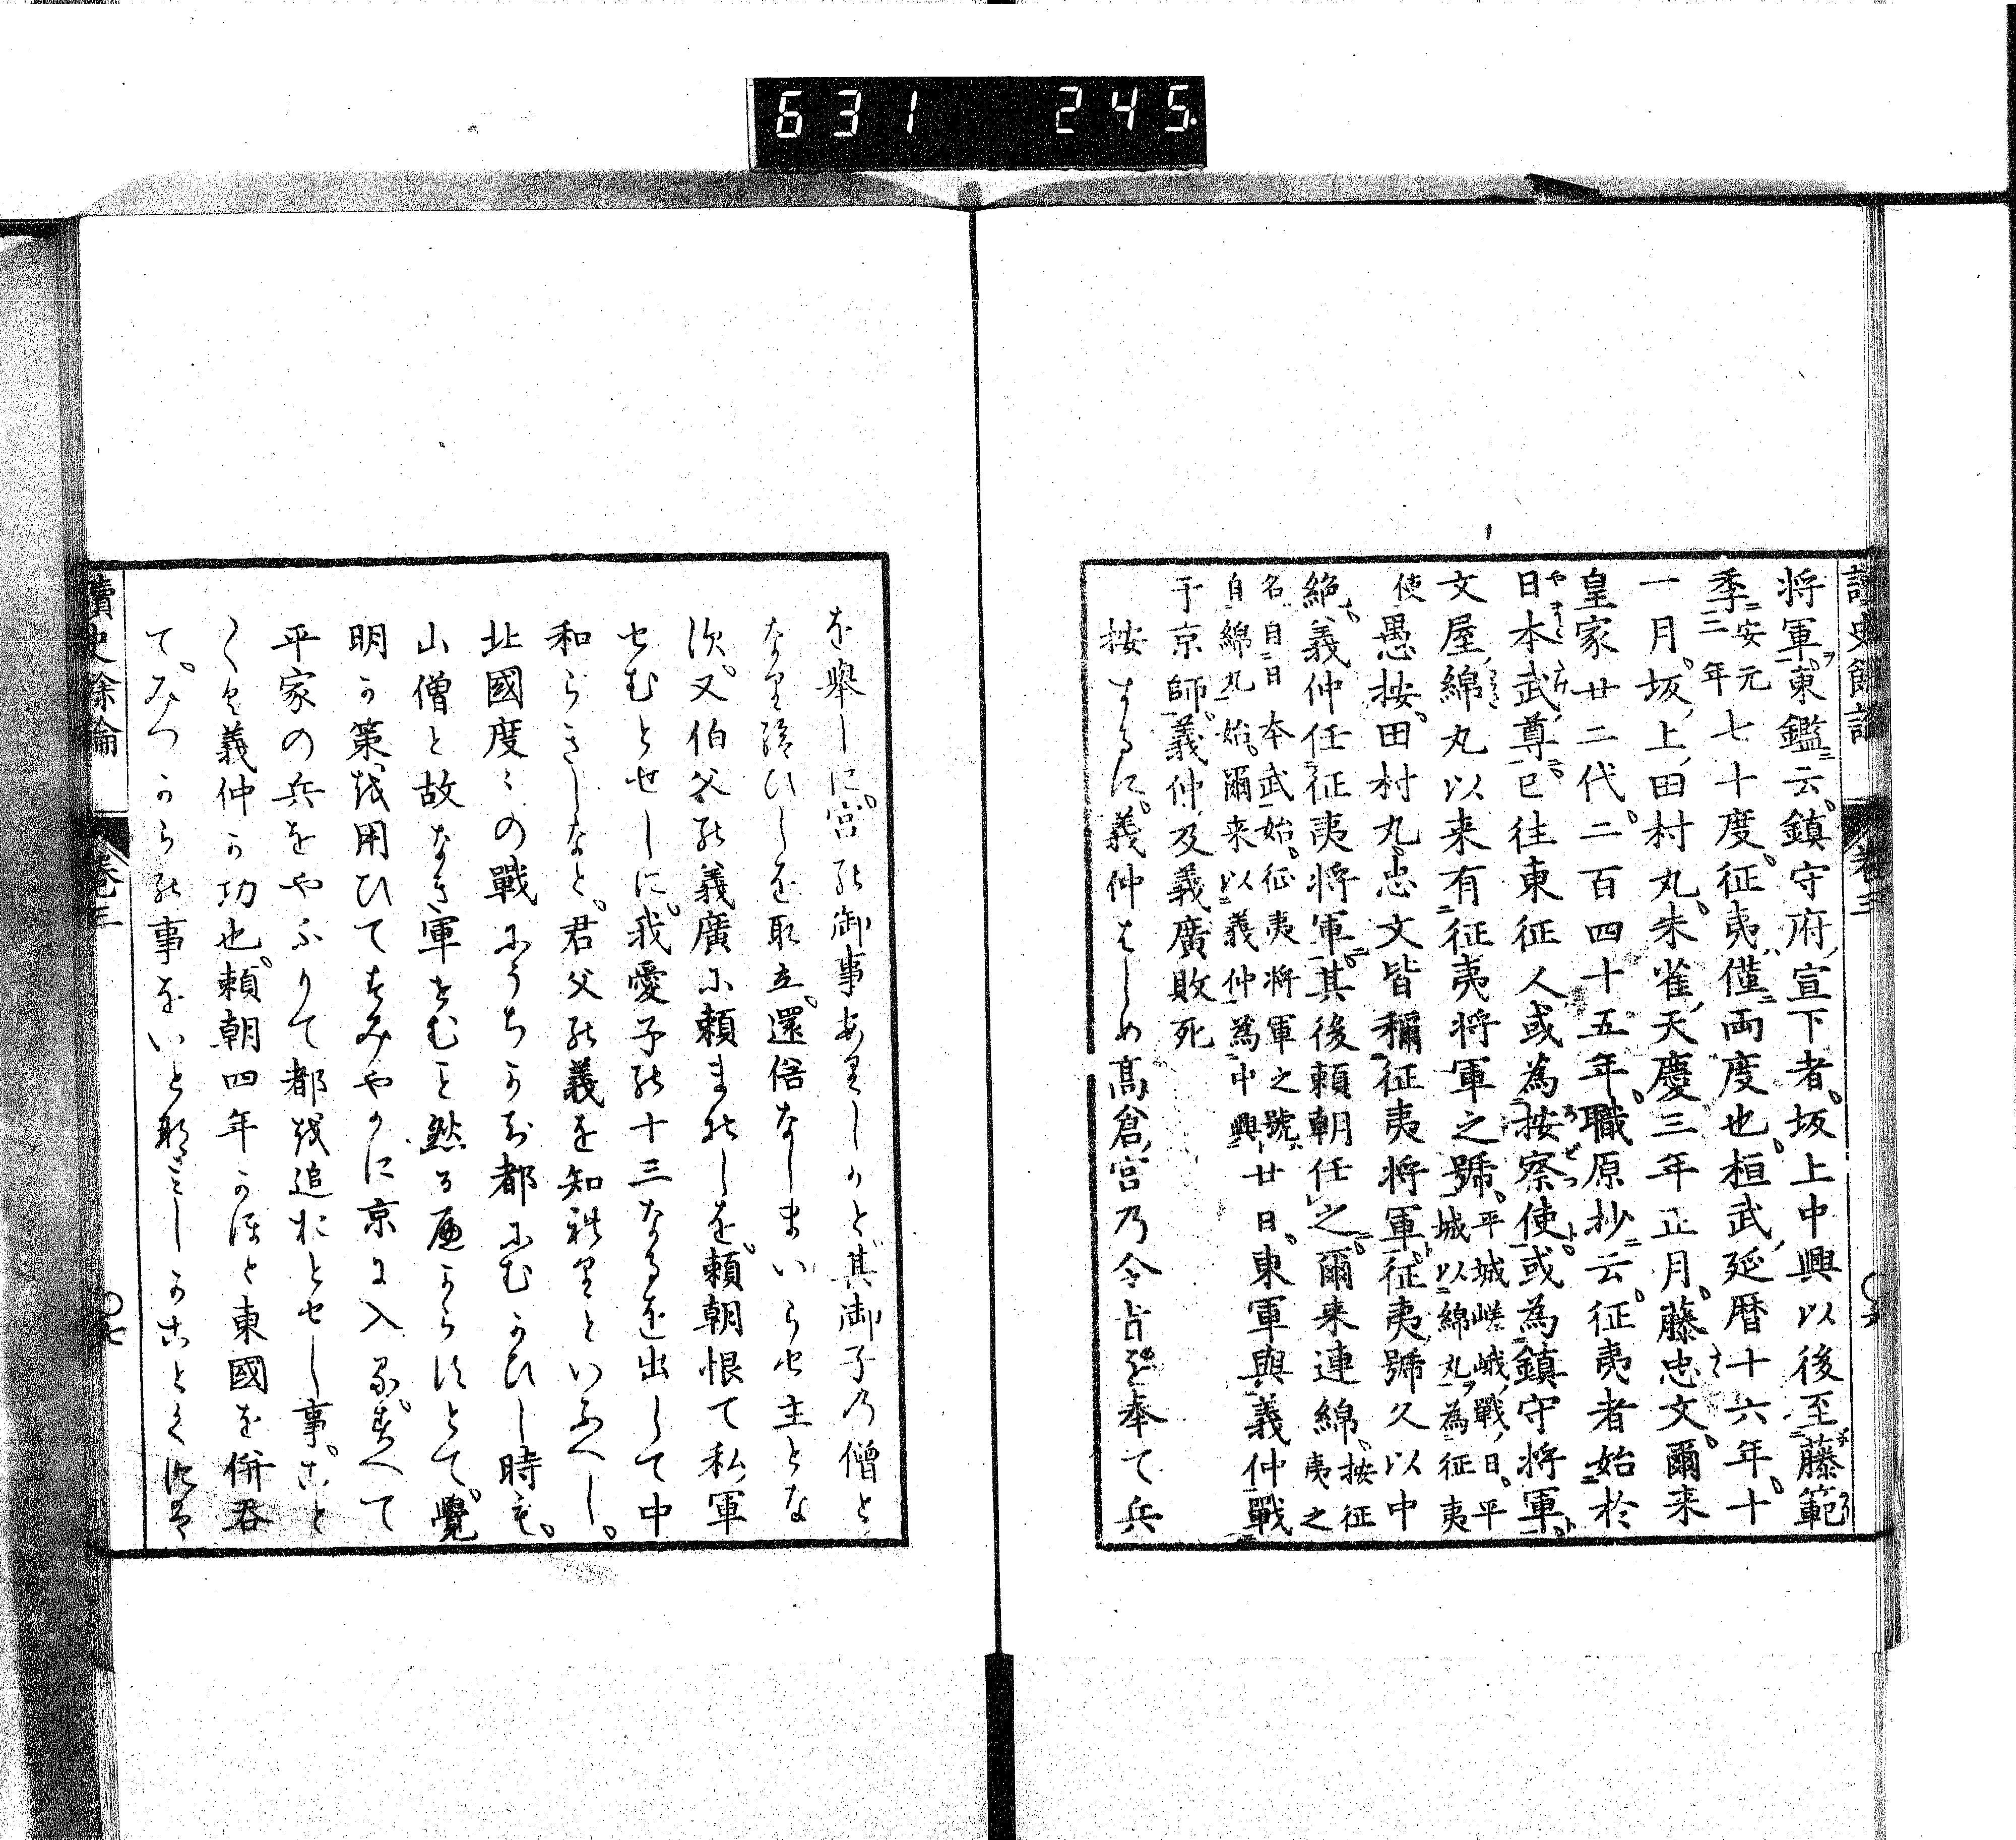 631 245.
讀史餘論 卷三 〇六
将軍。東鑑云。鎮守府、宣下者。坂上中興以後至藤範
季安元二年七十度。征夷僅両度也。桓武、延暦十六年。十
一月。坂上田村丸。朱雀、天慶三年正月。藤忠文。爾来
皇家廿二代。二百四十五年。職原抄云。征夷者始於
日本武尊。已往東征人或為按察使。或為鎮守将軍。
文屋綿丸以来有征夷将軍之號。平城嵯峨戰日。平城以綿丸為征夷
使愚按。田村丸。忠文皆稱征夷将軍。征夷號久以中
絶。義仲任征夷将軍。其後頼朝任之。爾来連綿。按征夷之
名自日本武始。征夷将軍之號
自綿丸始。爾来以義仲為中興廿日。東軍與義仲戰
于京師。義仲及義廣敗死
按するに。義仲はしめ高倉宮乃令旨を奉て兵
を舉しに。宮の御事ありしかと其御子乃僧と
なり給ひしを取立。還俗なしまいらせ主とな
す。又伯父の義廣に頼まれしを。頼朝恨て私軍
せむとせしに。我愛子の十三なるを出して中
和らきしなと。君父の義を知れりといふへし。
北國度々の戰にうちかち都にむかひし時も。
山僧と故なき軍せむこと然るへからすとて。覺
明か策を用ひてすみやかに京に入る。すへて
平家の兵をやふりて都を追おとせし事。こと
〱く義仲か功也。頼朝四年かほと東國を併呑
て。みつからの事をいとなみしかことくは
讀史餘論 卷三 〇七